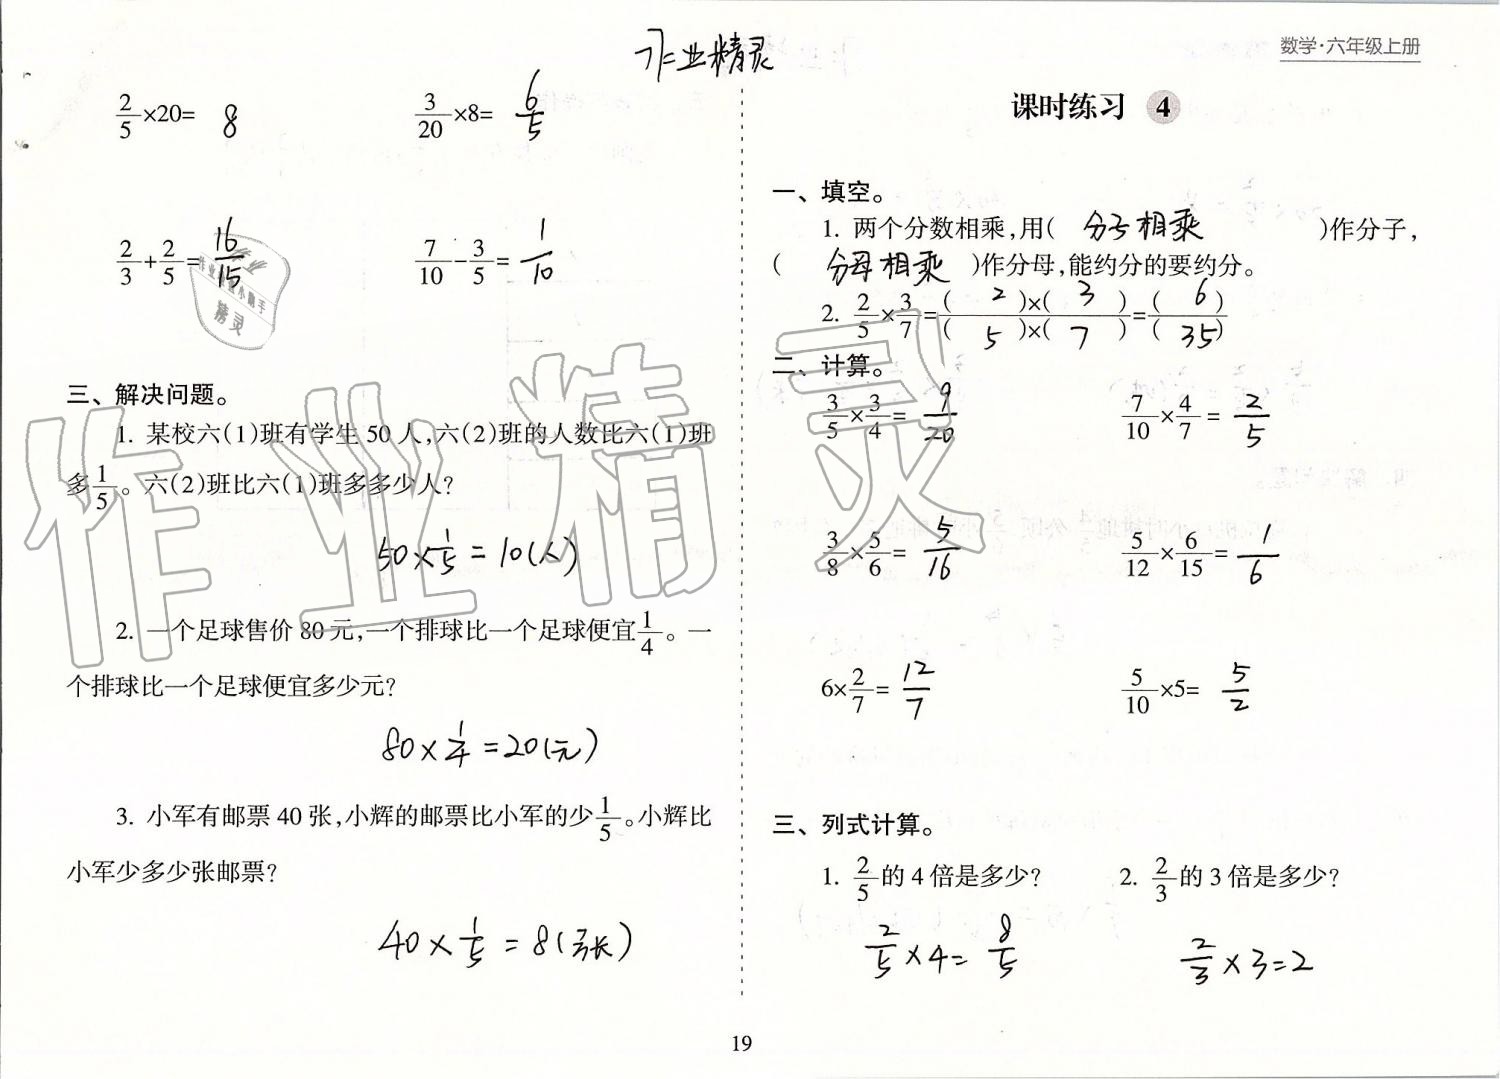 作业精灵
数学·六年级上册
2/5×20= 8
3/20×8= 6/5
2/3+2/5= 16/15
7/10-3/5= 1/10
三、解决问题。
1. 某校六(1)班有学生50人,六(2)班的人数比六(1)班
多1/5。六(2)班比六(1)班多多少人?
50×1/5=10(人)
2. 一个足球售价80元,一个排球比一个足球便宜1/4。一
个排球比一个足球便宜多少元?
80×1/4=20(元)
3. 小军有邮票40张,小辉的邮票比小军的少1/5。小辉比
小军少多少张邮票?
40×1/5=8(张)
课时练习 4
一、填空。
1. 两个分数相乘,用( 分子相乘 )作分子,
( 分母相乘 )作分母,能约分的要约分。
2. 2/5×3/7=( 2 )×( 3 )/( 5 )×( 7 )=( 6 )/( 35 )
二、计算。
3/5×3/4= 9/20
7/10×4/7= 2/5
3/8×5/6= 5/16
5/12×6/15= 1/6
6×2/7= 12/7
5/10×5= 5/2
三、列式计算。
1. 2/5的4倍是多少?
2. 2/3的3倍是多少?
2/5×4=8/5
2/3×3=2
19
作业精灵